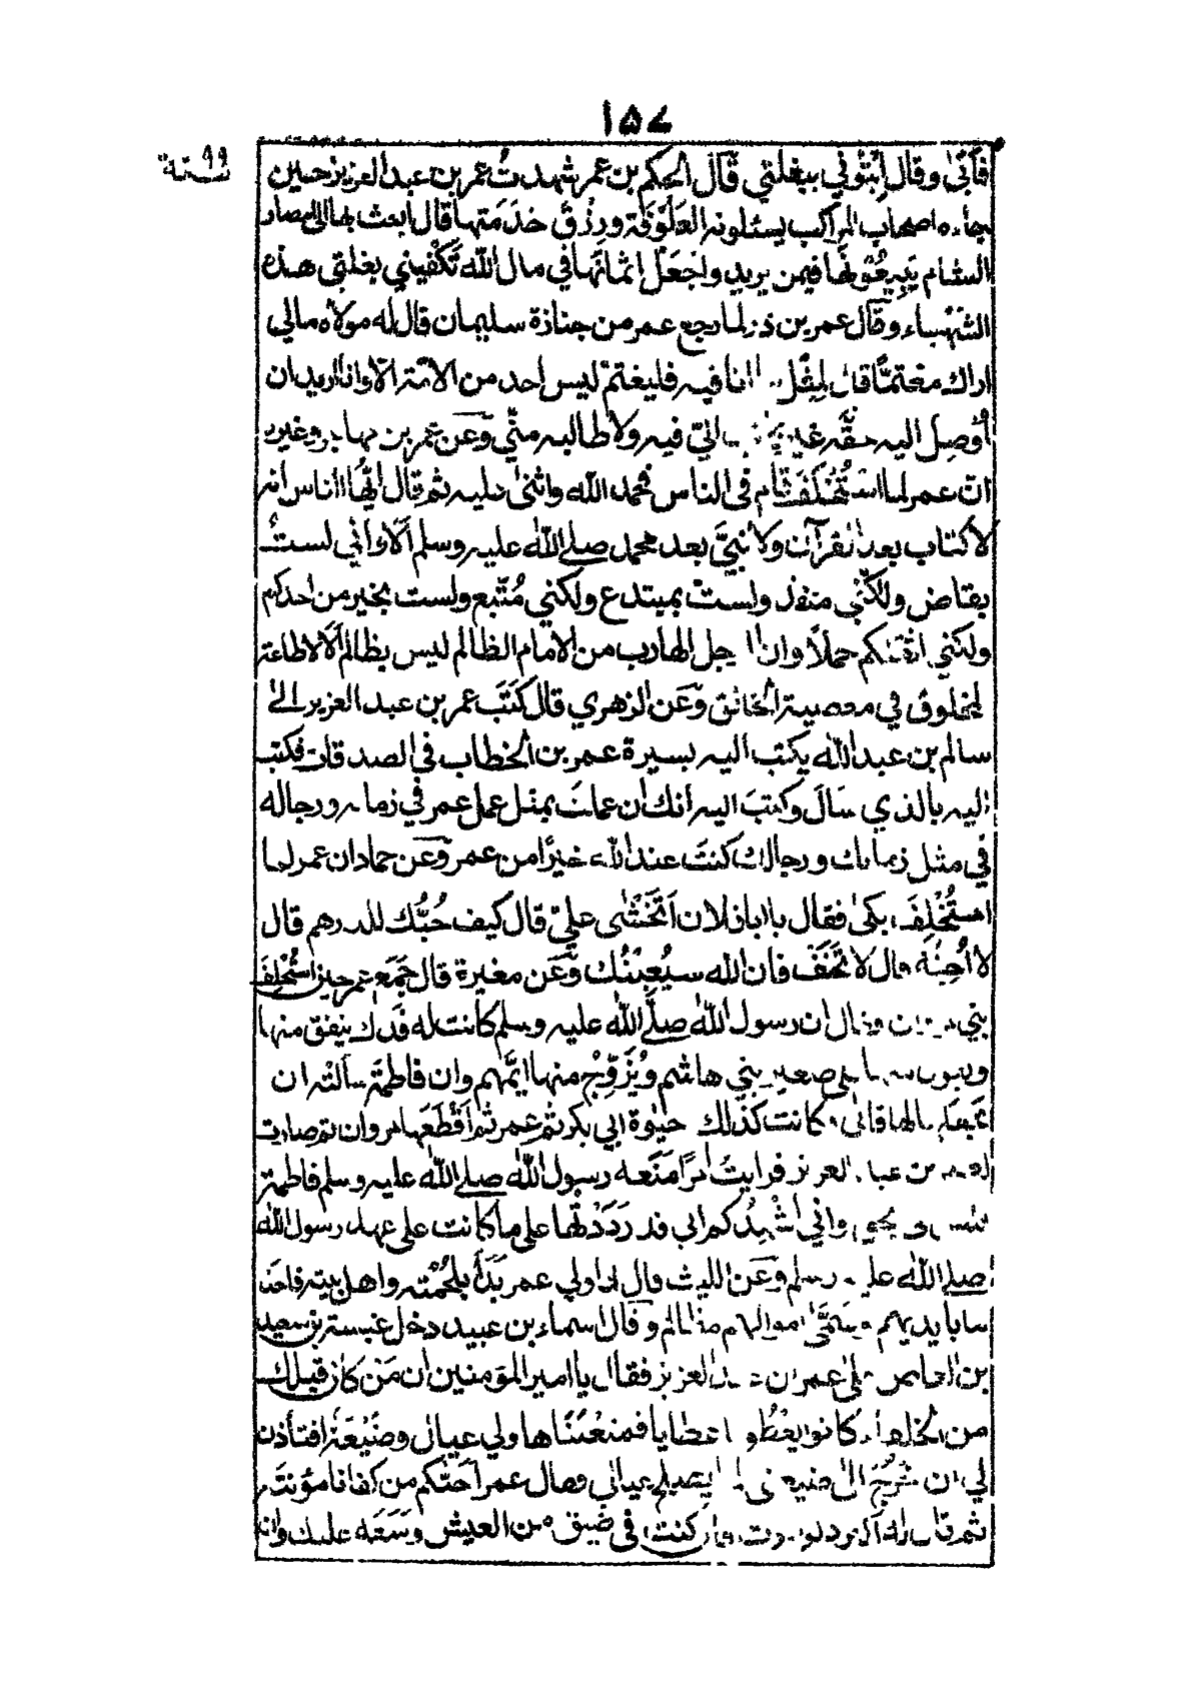 ١٥٧
سنة ٩٩
فَأَبٰى وقال إيتُوني ببغلتي قال الحكم بن عمر شهدتُ عمر بن عبد العزيز حين
جاءه اصحاب المراكب يسئلونه العَلُوفَة ورزقَ خدَمَتها قال ابعث بها الى امصار
الشام يَبِيعُوْنَها فيمن يريد واجْعَلْ اثمانَها في مال الله تَكْفِيني بغلتي هذه
الشهْباء وقال عمر بن ذر لما رجع عمر من جنازة سليمان قال له مولاه مالي
اراك مغتمًّا قال لِمِثْل انا فيه فليغتمّ ليس احد من الامّة الا وانا اريد ان
أُوْصِل اليه حقَّه غير اليّ فيه ولا طالبه منّي وعَن عمر بن مهاجر وغيره
انّ عمر لما اسْتُخْلَفَ قام في الناس فحمد الله واثنى عليه ثم قال ايُّها الناس انه
لا كتاب بعد القرآن ولا نبيَّ بعد محمد صلى الله عليه وسلم ألا واني لستُ
بقاض ولكنّي منفذ ولستُ بمبتدع ولكني مُتّبع ولست بخير من احدكم
ولكني اثقلكم حملاً وان الرجل الهارب من الامام الظالم ليس بظالم ألا لا طاعة
لمخلوق في معصية الخالق وعَن الزهري قال كَتَبَ عمر بن عبد العزيز الى
سالم بن عبد الله يكتب اليه بسيرة عمر بن الخطاب في الصدقات فكتب
اليه بالذي سَاَلَ وكتبَ اليه انك ان عملتَ بمثل عمل عمر في زمانه ورجاله
في مثل زمانك ورجالك كنتَ عند الله خيرًا من عمر وعَن حماد ان عمر لما
استُخْلِفَ بكى فقال يا ابا فلان اَتَخْشٰى عليّ قال كيف حُبُّك للدرهم قال
لا اُحِبُّهُ قال لا تَخَفْ فان الله سيُعِينُك وعَن مغيرة قال جَمَعَ عمر حين استُخْلِفَ
بني مروان وقال ان رسول الله صلَّى الله عليه وسلم كانت له فَدَك ينفق منها
ويعول منها على صغير بني هاشم ويُزَوِّجُ منها ايّمَهم وان فاطمةَ سألتْه ان
يجعلها لها فأبٰى كانت كذلك حيٰوة ابي بكر ثم عمر ثم اَقْطَعَها مروان ثم صارت
لعمر بن عبد العزيز فرايتُ امرًا مَنَعه رسول الله صلى الله عليه وسلم فاطمة
ليس لي بحق واني اُشْهِدُكم اني قد رَدَدْتُها على ما كانت على عهد رسول الله
صلى الله عليه وسلم وعَن الليث قال لما ولي عمر بَدَأَ بلُحْمَتِه واهل بيته فاخذ
ما بايديهم وسَمَّى اموالهم مظالم وقال اسماء بن عبيد دخل عنبسة بن سعيد
بن العاص على عمر بن عبد العزيز فقال يا امير المؤمنين ان مَن كان قبلك
من الخلفاء كانوا يعْطُونا عطايا فمنعْتَنَاها ولي عيال وضَيْعَة افتأذن
لي ان اَخْرُجَ الى ضيعتي لما يصلح عيالي فقال عمر احبّكم من كفانا مؤنتَه
ثم قال له اكثر ذكر الموت فان كنتَ في ضيق من العيش وسَّعَه عليك وان